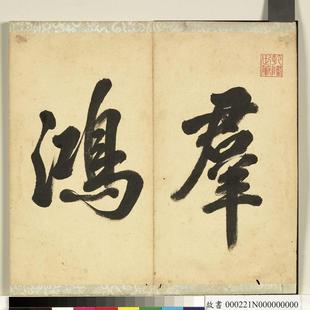 羣
鴻
故書 000221N000000000